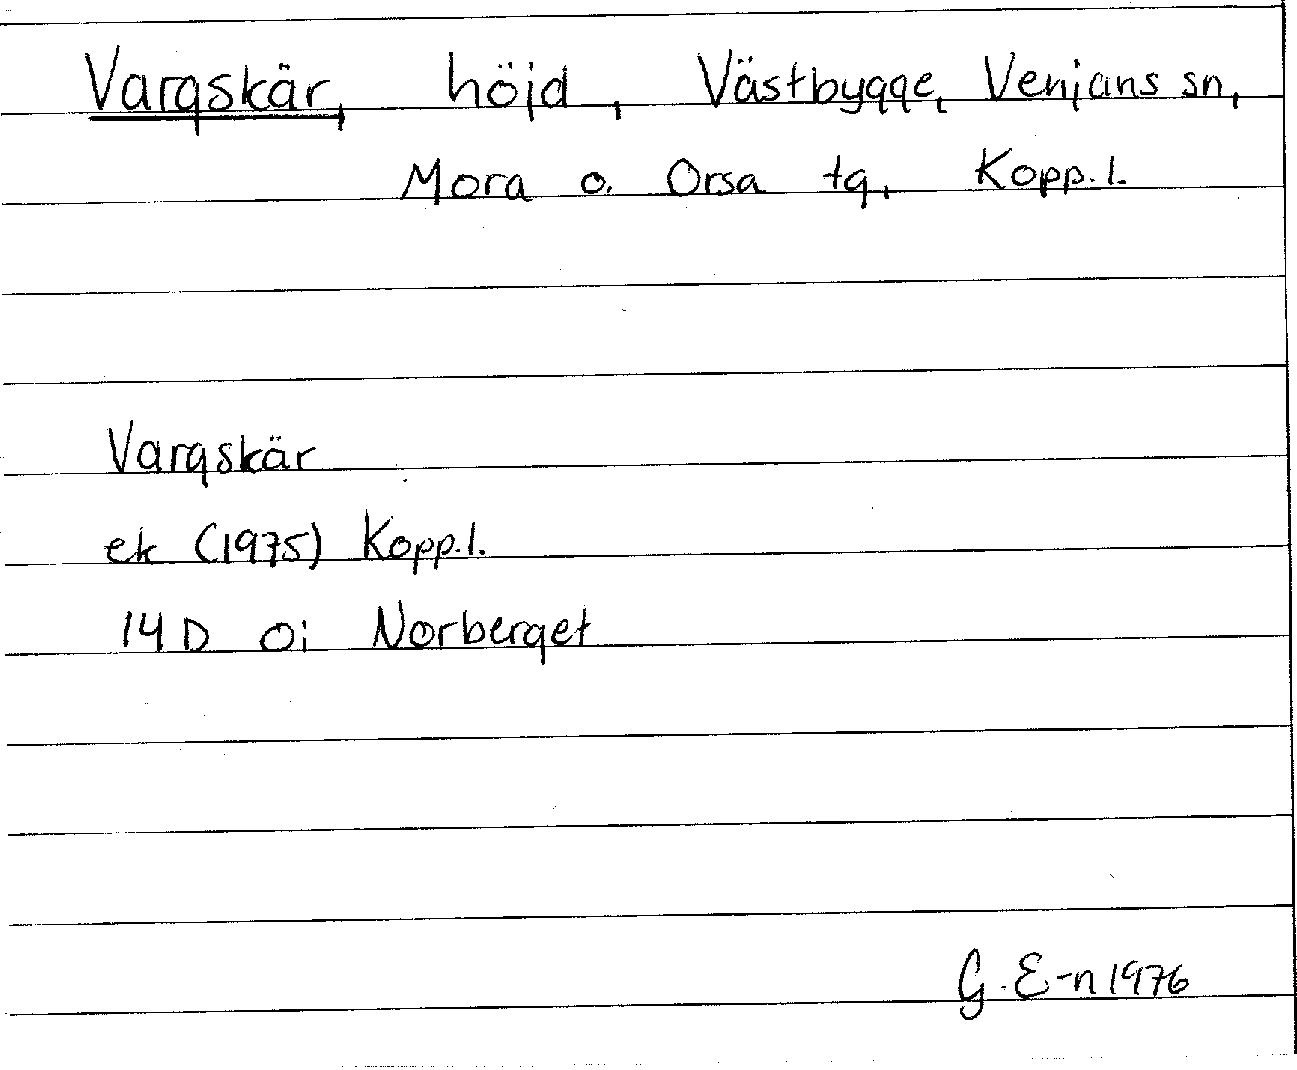 Vargskär, höjd, Västbygge, Venjans sn,
Mora o. Orsa tg, Kopp.l.
Vargskär
ek (1975) Kopp.l.
14 D 0i Norberget
G. E-n 1976